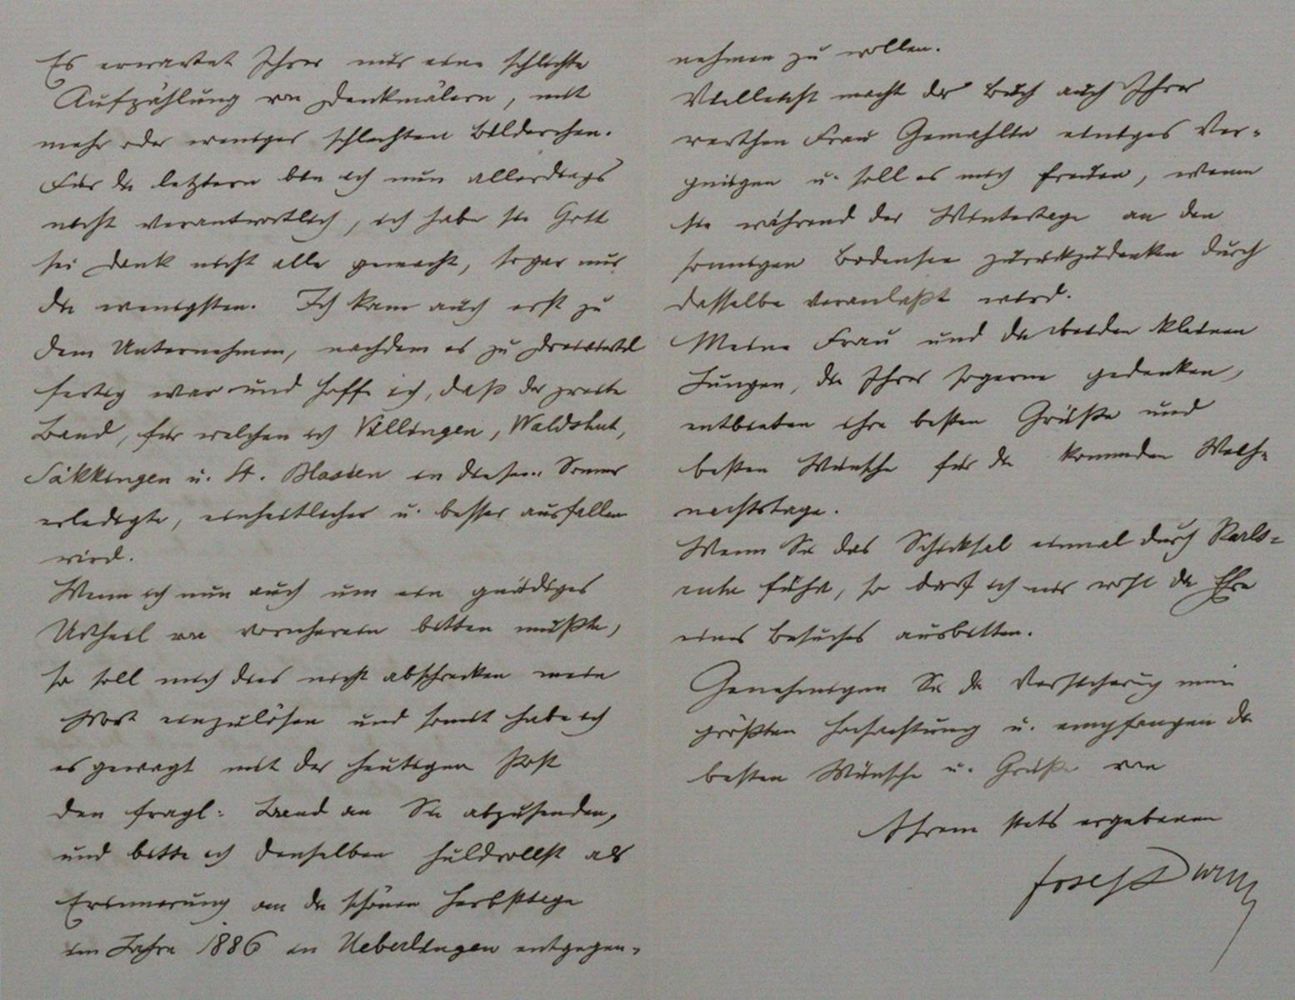 Es erwartet Ihrer nur eine schlichte
Aufzählung von Denkmälern, mit
mehr oder weniger schlechten Bilderchen.
Für die letztern bin ich nun allerdings
nicht verantwortlich, ich habe sie Gott
sei Dank nicht alle gemacht, sogar nur
die wenigsten. Ich kam auch erst zu
dem Unternehmen, nachdem es zu dreiviertel
fertig war und hoffe ich, daß der zweite
Band, für welchen ich Villingen, Waldshut,
Säkkingen u. St. Blasien in diesem Sommer
erledigte, einheitlicher u. besser ausfallen
wird.
Wenn ich nun auch um ein gnädiges
Urtheil von vornherein bitten mußte,
so soll mich dies nicht abschrecken mein
Wort einzulösen und somit habe ich
es gewagt mit der heutigen Post
den fragl: Band an Sie abzusenden,
und bitte ich denselben huldvollst als
Erinnerung an die schönen Herbsttage
im Jahre 1886 in Ueberlingen entgegen-
nehmen zu wollen.
Vielleicht macht das Buch auch Ihrer
werthen Frau Gemahlin einiges Ver-
gnügen u. soll es mich freuen, wenn
sie während der Wintertage an den
sonnigen Bodensee zurückzudenken durch
dasselbe veranlaßt wird.
Meine Frau und die beiden kleinen
Jungen, die Ihrer sogerne gedenken,
entbieten ihre besten Grüße und
besten Wünsche für die kommenden Weih-
nachtstage.
Wenn Sie das Schicksal einmal durch Karls-
ruhe führt, so darf ich mir wohl die Ehre
eines Besuches ausbitten.
Genehmigen Sie die Versicherung meiner
größten Hochachtung u. empfangen die
besten Wünsche u. Grüße von
Ihrem stets ergebenen
Josef Durm